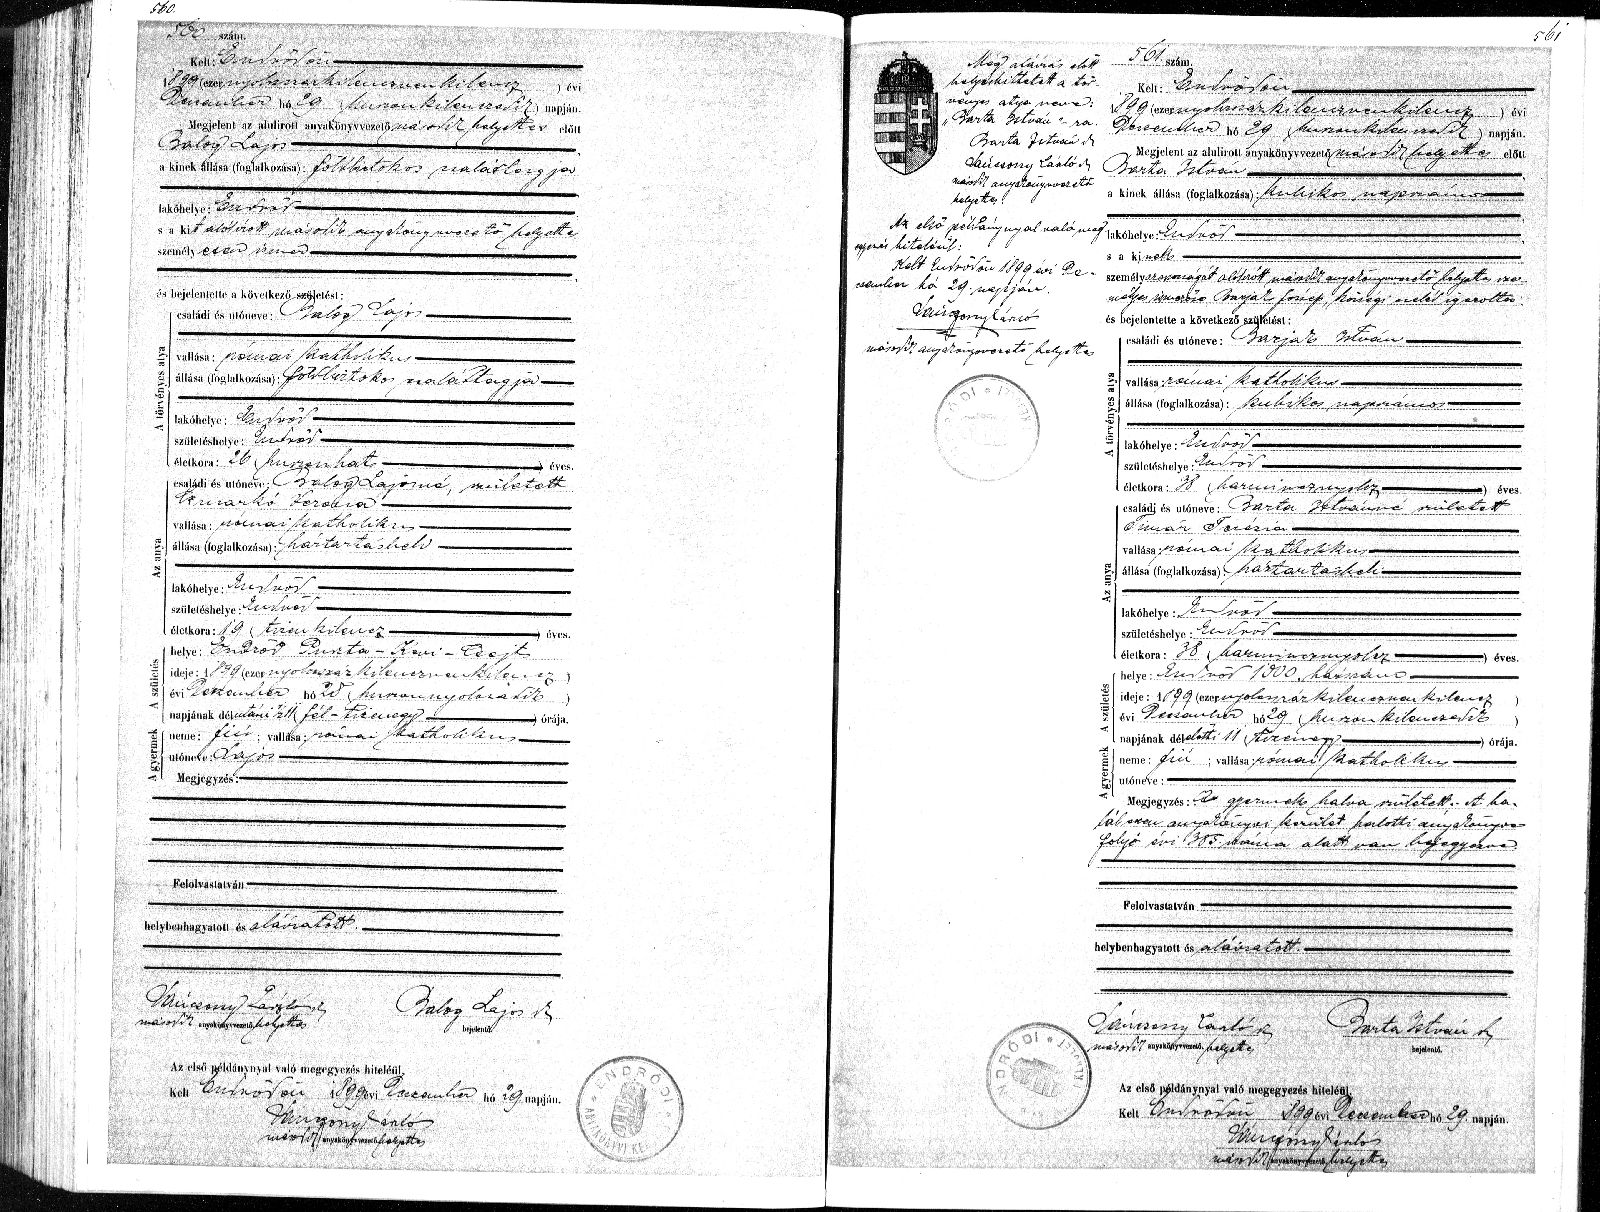 560.
560 szám.
Kelt: Endrődön
1899 (ezer nyolcszázkilenczvenkilencz) évi
December hó 29 (huszonkilenczedik) napján.
Megjelent az alulirott anyakönyvvezető második helyettes előtt
Balog Lajos
a kinek állása (foglalkozása): földbirtokos
lakóhelye: Endrőd
s a kit alólírott második anyakönyvvezető helyettes
személyesen ismer
és bejelentette a következő születést:
A törvényes atya
családi és utóneve: Balog Lajos
vallása: római katholikus
állása (foglalkozása): földbirtokos
lakóhelye: Endrőd
születéshelye: Endrőd
életkora: 26 (huszonhat) éves.
Az anya
családi és utóneve: Balog Lajosné, született
vallása: római katholikus
állása (foglalkozása): háztartásbeli
lakóhelye: Endrőd
születéshelye: Endrőd
életkora: 19 (tizenkilencz) éves.
A születés
helye: Endrőd Puszta-
ideje: 1899 (ezer nyolcszázkilenczvenkilencz)
évi December hó 28 (huszonnyolczadik)
napjának délutáni (fél-tizenegy) órája.
A gyermek
neme: fiú; vallása: római katholikus
utóneve: Lajos
Megjegyzés:
Felolvastatván
helybenhagyatott és aláíratott.
László Balog Lajos
második anyakönyvvezető helyettes bejelentő.
Az első példánynyal való megegyezés hiteléül,
Kelt Endrődön 1899 évi December hó 29 napján.
László
második anyakönyvvezető helyettes
ENDRŐDI
561
Még aláírás előtt
helyesbíttetett a tör-
vényes atya neve:
"Barta István"-ra.
Barta István
László
második anyakönyvvezető
helyettes
Az első példánynyal való meg-
egyezés hiteléül:
Kelt Endrődön 1899 évi De-
czember hó 29. napján.
László
második anyakönyvvezető helyettes
561 szám.
Kelt: Endrődön
1899 (ezer nyolcszázkilenczvenkilencz) évi
Deczember hó 29 (huszonkilenczedik) napján.
Megjelent az alulirott anyakönyvvezető második helyettes előtt
Barta István
a kinek állása (foglalkozása): kubikos napszámos
lakóhelye: Endrőd
s a kinek
személyazonosságát alólírott második anyakönyvvezető helyettes
József, községi igazolta
és bejelentette a következő születést:
A törvényes atya
családi és utóneve: István
vallása: római katholikus
állása (foglalkozása): kubikos napszámos
lakóhelye: Endrőd
születéshelye: Endrőd
életkora: 38 (harmincznyolcz) éves.
Az anya
családi és utóneve: Barta Istvánné született
Timár Terézia
vallása: római katholikus
állása (foglalkozása): háztartásbeli
lakóhelye: Endrőd
születéshelye: Endrőd
életkora: 38 (harmincznyolcz) éves.
A születés
helye: Endrőd 1300. házszám
ideje: 1899 (ezer nyolcszázkilenczvenkilencz)
évi Deczember hó 29 (huszonkilenczedik)
napjának délelőtti 11 (tizenegy) órája.
A gyermek
neme: fiú; vallása: római katholikus
utóneve:
Megjegyzés: A gyermek halva született. A ha-
lál ezen anyakönyvi kerület halotti anyakönyve
folyó évi 385. száma alatt van bejegyezve
Felolvastatván
helybenhagyatott és aláíratott.
László Barta István
második anyakönyvvezető, helyettes bejelentő.
Az első példánynyal való megegyezés hiteléül,
Kelt Endrődön 1899 évi December hó 29. napján.
László
második anyakönyvvezető helyettes